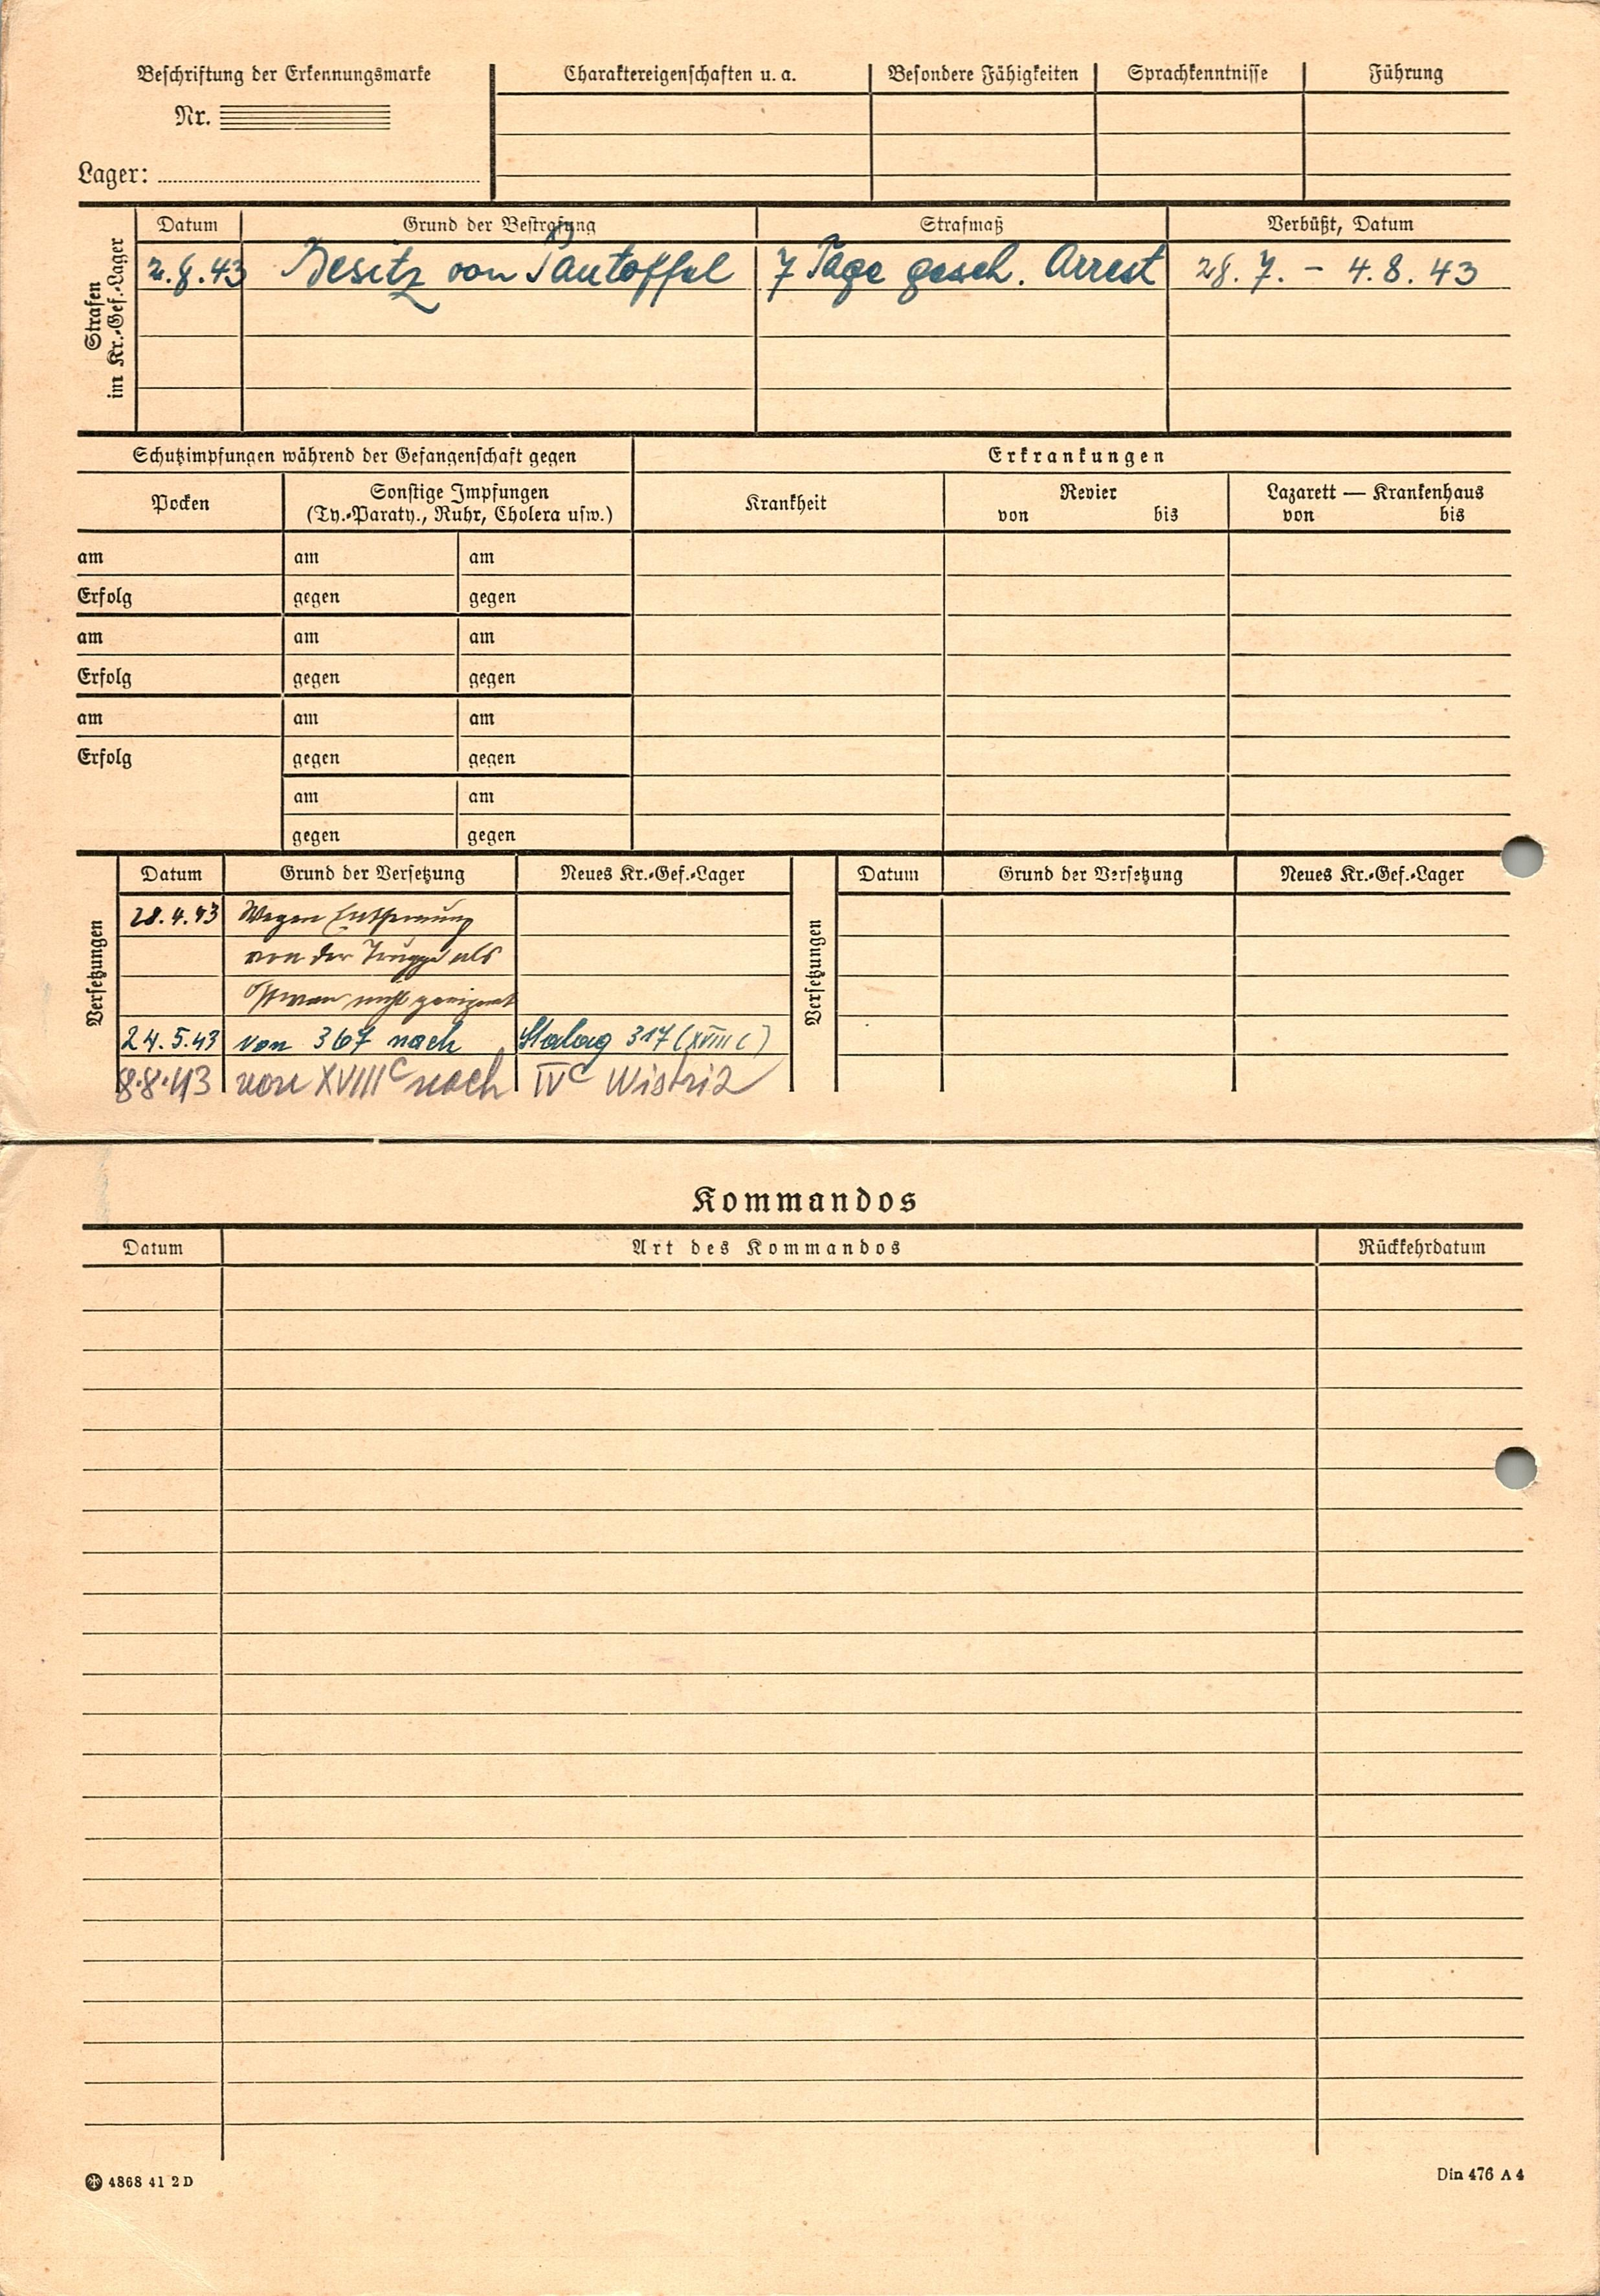 Beschriftung der Erkennungsmarke
Nr.
Lager:
Charaktereigenschaften u. a.
Besondere Fähigkeiten
Sprachkenntnisse
Führung
Strafen
im Kr.-Gef.-Lager
Datum Grund der Bestrafung Strafmaß Verbüßt, Datum
2.8.43 Besitz von Pantoffel 7 Tage gesch. Arrest 28. 7. – 4. 8. 43
Schutzimpfungen während der Gefangenschaft gegen Erkrankungen
Pocken
Sonstige Impfungen
(Ty.-Paraty., Ruhr, Cholera usw.)
Krankheit
Revier
von bis
Lazarett — Krankenhaus
von bis
am am am
Erfolg gegen gegen
am am am
Erfolg gegen gegen
am am am
Erfolg gegen gegen
am am
gegen gegen
Versetzungen
Datum Grund der Versetzung Neues Kr.-Gef.-Lager
28.4.43 Wegen Entfernung
von der Truppe als
nicht geeignet
24.5.43 von 367 nach Stalag 317 (XVIII C)
8.8.43 von XVIII C nach IV C Wistriz
Versetzungen
Datum Grund der Versetzung Neues Kr.-Gef.-Lager
Kommandos
Datum Art des Kommandos Rückkehrdatum
4868 41 2 D
Din 476 A 4